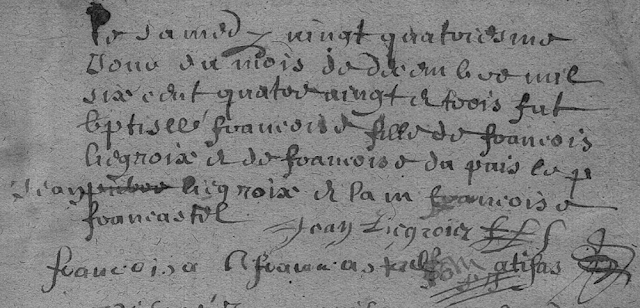 Le samedy vingt quatoriesme
Jour du mois de decembre mil
six cent quatre vingt et trois fut
bptisee francoise fille de francois
liegroix et de francoise du pais le p
Jean liegroix et la m francoise
francastel
Jean Liegroix
francoise francastel